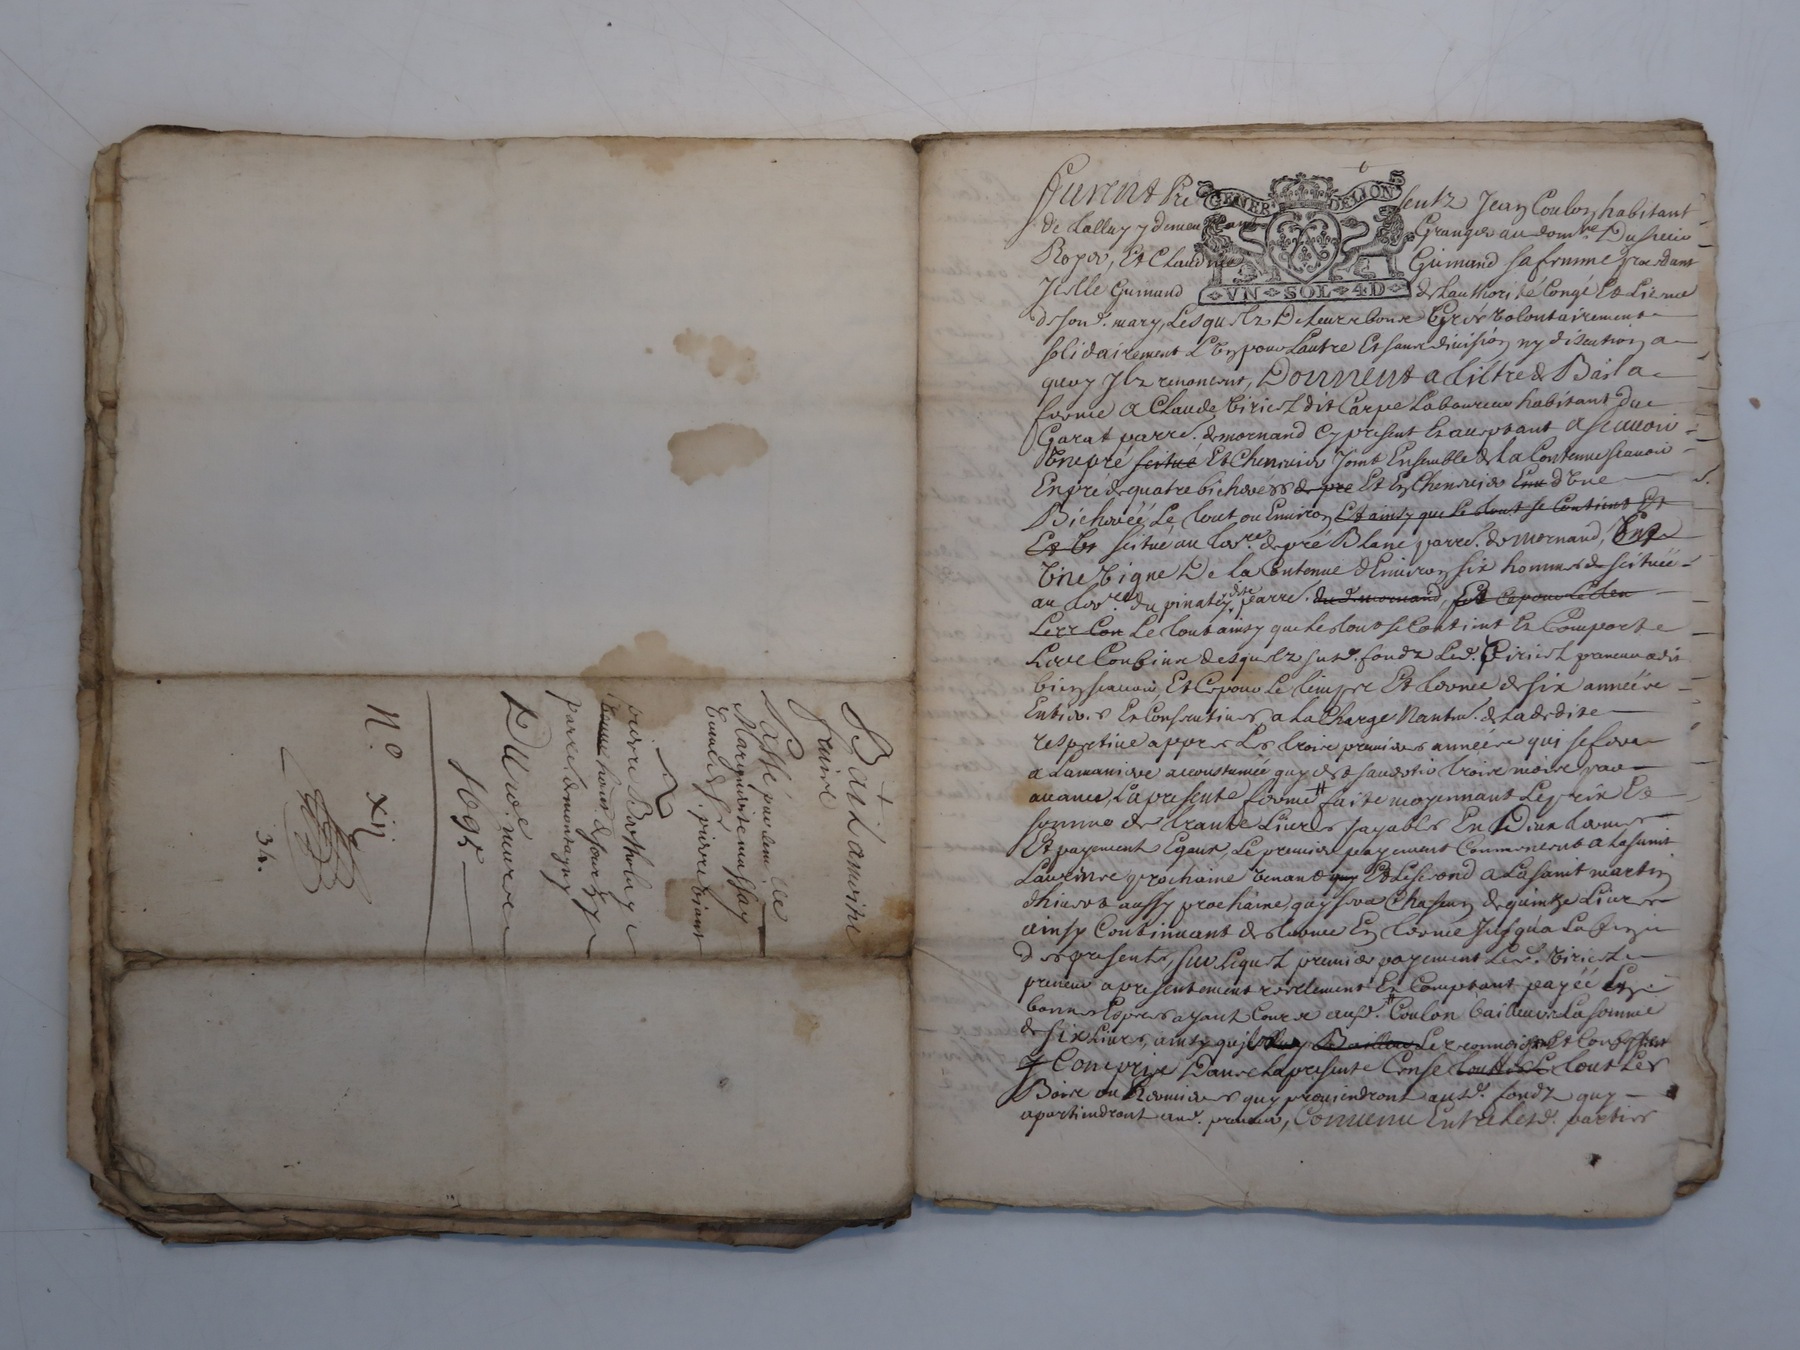 Bail a moitié
fruicts
Passé par dam.lle
Marguerite massay
vefve de s.r pierre
à
pierre Berthelay
parr.e de montagny
Du 20e mars
1695
N.o xij
34.
Furent Pre sentz Jean Coulon habitant
de Lallay y demeurant Granger au dom.ne Du sieur
Royer, Et Claudine Guinand sa femme procedant
Jcelle Guinand de Lauthorité Congé Et Licence
GENER DE LION
VN SOL 4D
de son.d mary, Lesquelz De Leurs bons Grés volontairement
solidairement L'vn pour Lautre Et sans division ny discution a
quoy Jlz renoncent, Donnent a tiltre de Bail a
ferme a Claude Viriest dit Carpe Laboureur habitant du
Garat parr.e de mornand Cy present Et acceptant asscavoir
Vn pré scitué Et Cheneviere Joint Ensemble de La Contenue scavoir
En pré de quatre bicherées de pré Et En Cheneviere d'vne
Bicherée, Le tout ou Environ Et ainsy que Le tout se Contient Et
Scitué au terr.re de pré Blanc parr.e de mornand, Vne
Vigne De La Contenue d'Environ six hommées scituée
au terr.re du pinatey dite parr.e du.d mornand,
Le tout ainsy que Le tout se Contient Et Comporte
Lesquelz sus.d fondz Le.d Viriest preneur a dit
bien scavoir, Et Ce pour Le temps Et terme de six années
Entieres Et Consecutives a La Charge de La dedite
respective appres Les trois premieres années qui se fera
a La maniere accoustumée quy est scavoir trois mois par
avance, La presente ferme faite moyennant Le prix Et
somme de trante Livres payables En Deux termes
Et payement Egaux, Le premier payement Commencent a La saint
Laurens prochaine venant Et Le second a La saint martin
d'hiver aussy prochaine quy sera Chascun de quinze Livres
ainsy Continuant de terme En terme Jusqu'a La fin
des presentes, sur Lequel premier payement Le.d Viriest
preneur a presentement reellement Et Comptant payé En
bonnes Especes ayant Cours au.d Coulon bailleur La somme
de six Livres, ainsy qu'il Le reconnoist Et Confesse
y Compris Dans La presente Cense tout Les
Bois ou quy proviendront aus.d fondz quy
apartiendront au.d preneur, Convenu Entre Les.d parties